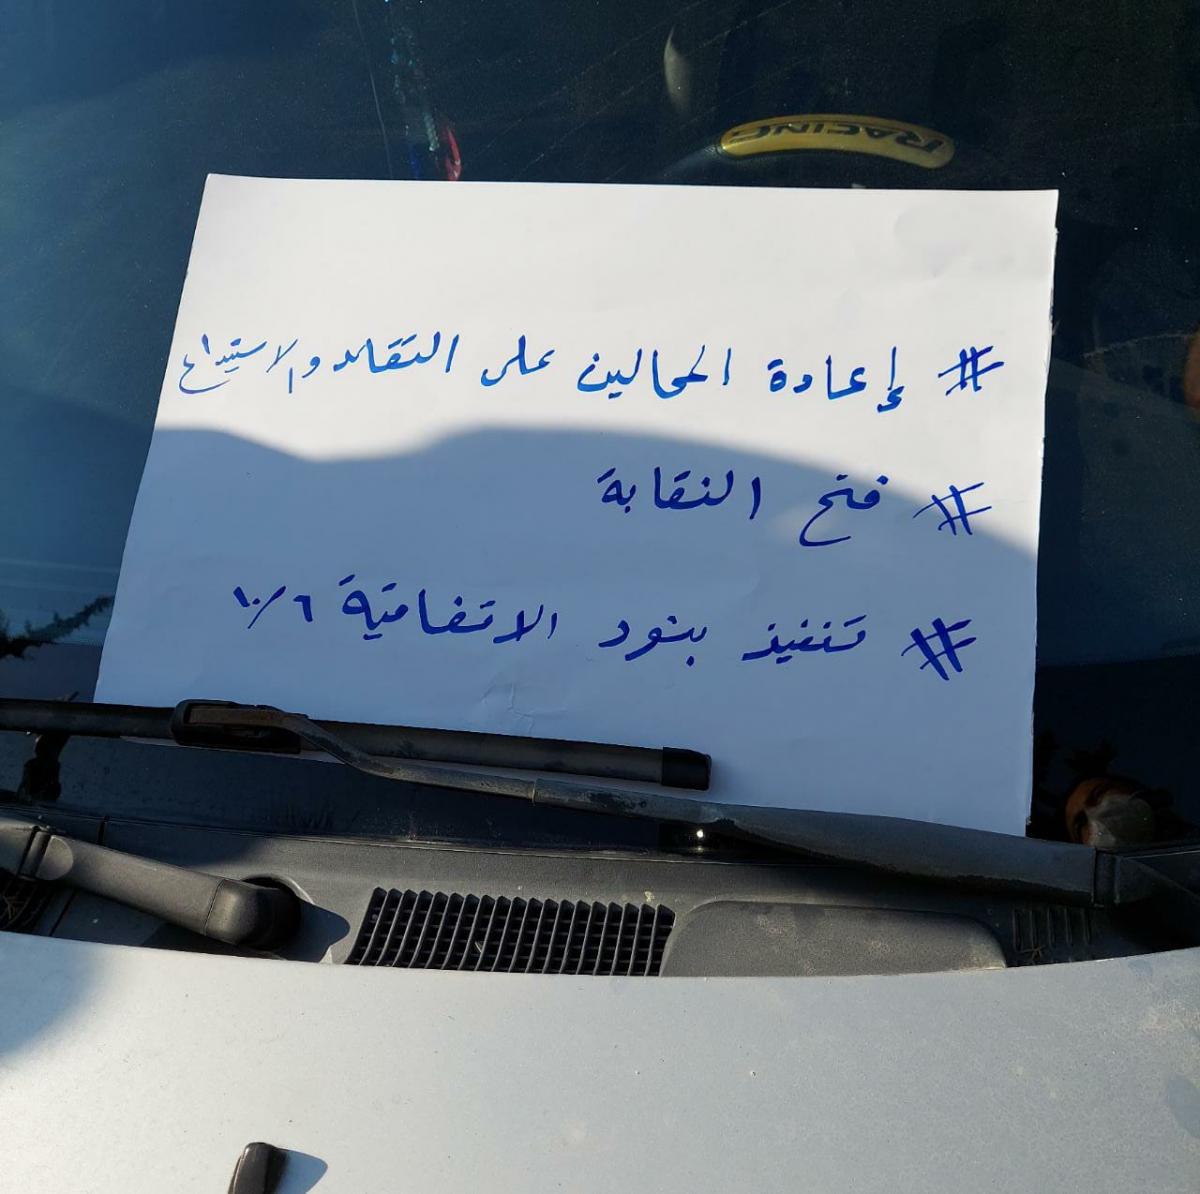 RACING
# إعادة المحالين على التقاعد والاستيداع
# فتح النقابة
# تنفيذ بنود الاتفاقية ٦/١٠